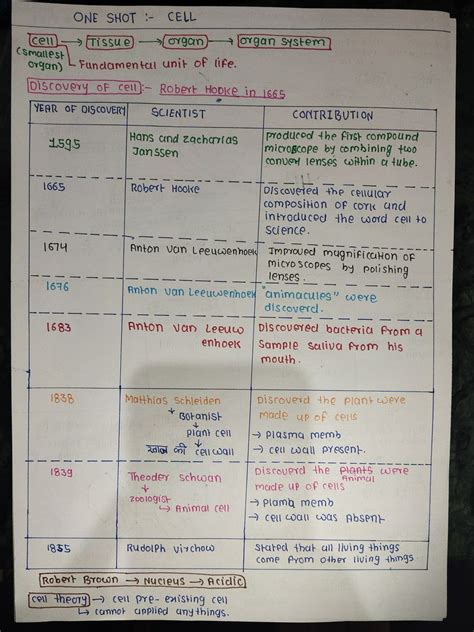 ONE SHOT :- CELL
cell → Tissue → organ → organ system
(smallest organ) Fundamental unit of life.
Discovery of cell :- Robert Hooke in 1665
YEAR OF DISCOVERY SCIENTIST CONTRIBUTION
1595 Hans and zacharias Janssen produced the first compound
microscope by combining two
convex lenses within a tube.
1665 Robert Hooke Discovered the cellular
composition of cork and
introduced the word cell to
science.
1674 Anton van Leeuwenhoek Improved magnification of
microscopes by polishing
lenses.
1676 Anton van Leeuwenhoek "animacules" were
discoverd.
1683 Anton van Leeuw enhoek Discovered bacteria from a
sample saliva from his
mouth.
1838 Matthias Schleiden Discoverd the plant were
made up of cells
Botanist → Plasma memb
plant cell → cell wall present.
cell wall
1839 Theoder Schwan Discoverd the PLANTS were
Animal
made up of cells
zoologist → Plamb memb
Animal cell → cell wall was Absent
1855 Rudolph virchow Stated that all living things
come from other living things
Robert Brown → Nucleus → Acidic
cell theory → cell pre-existing cell
cannot applied any things.